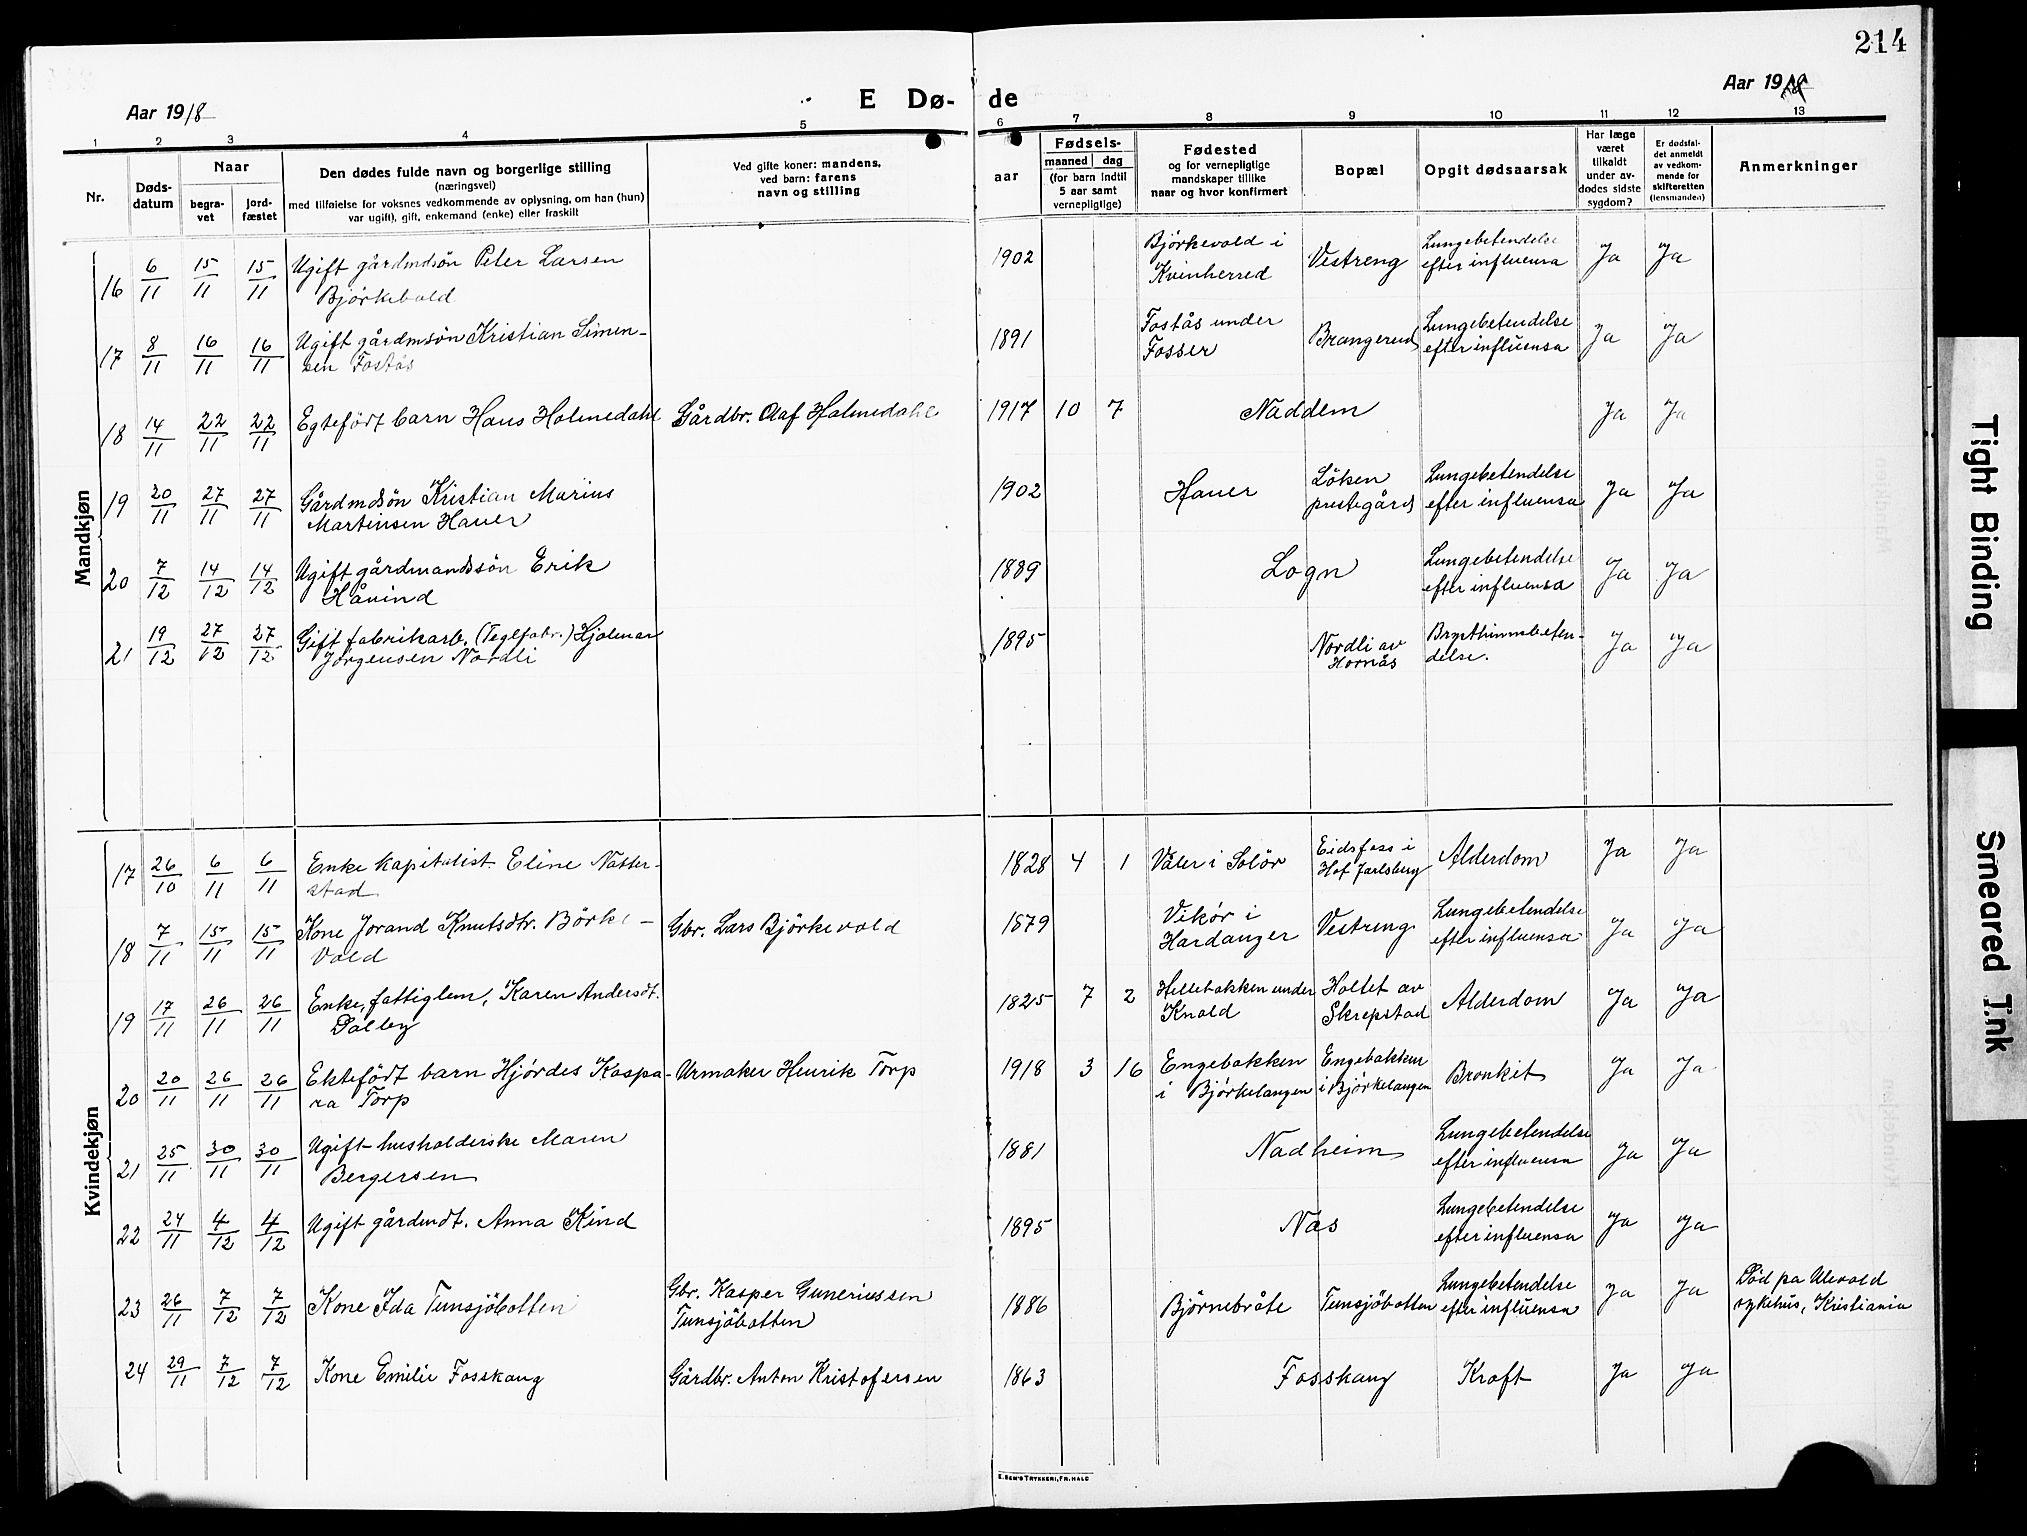 214
Aar 1918
E Dø-
de
Aar 19
1 2 3 4 5 6 7 8 9 10 11 12 13
Nr.
Døds-
datum
Naar
begra-
vet
jord-
fæstet
Den dødes fulde navn og borgerlige stilling
(næringsvei)
med tilføielse for voksnes vedkommende av oplysning, om han (hun)
var ugift, gift, enkemand (enke) eller fraskilt
Ved gifte koner: mandens,
ved barn: farens
navn og stilling
aar
Fødsels-
maaned dag
(for barn indtil
5 aar samt
vernepligtige)
Fødested
og for vernepligtige
mandskaper tillike
naar og hvor konfirmert
Bopæl
Opgit dødsaarsak
Har læge
været
tilkaldt
under av-
dødes sidste
sygdom?
Er dødsfal-
det anmeldt
av vedkom-
mende for
skifteretten
(lensmanden)
Anmerkninger
Mandkjøn
16 6/11 15/11 15/11 Ugift gårdmdsön Peter Larsen
Björkevold
1902 Björkevold i
Kvinherred Vestreng Lungebetendelse
efter influensa Ja Ja
17 8/11 16/11 16/11 Ugift gårdmsön Kristian Simen-
sen Fostås
1891 Fostås under
Fosser Brangerud Lungebetendelse
efter influensa Ja Ja
18 14/11 22/11 22/11 Egtefödt barn Hans Holmedahl Gårdbr. Olaf Holmedahl 1917 10 7 Naddem Ja Ja
19 20/11 27/11 27/11 Gårdmdsön Kristian Marius
Martinsen Haver
1902 Haver Löken
prestegård Lungebetendelse
efter influensa Ja Ja
20 7/12 14/12 14/12 Ugift gårdmandssön Erik
Håvind
1889 Logn Lungebetendelse
efter influensa Ja Ja
21 19/12 27/12 27/12 Gift fabrikarb. (Teglfabr.) Hjalmar
Jörgensen Nordli
1895 Nordli av
Hornås Brysthinnebeten-
delse. Ja Ja
Kvindekjøn
17 26/10 6/11 6/11 Enke kapitalist Eline Natter-
stad
1828 4 1 Våler i Solör Eidsfoss i
Hof Jarlsberg Alderdom Ja Ja
18 7/11 15/11 15/11 Kone Jorand Knutsdtr. Börke-
vold
Gbr. Lars Björkevold 1879 Vikör i
Hardanger Vestreng Lungebetendelse
efter influensa Ja Ja
19 17/11 26/11 26/11 Enke, fattiglem, Karen Andersdt.
Dalby
1825 7 2 Hellebakken under
Knold Holtet av
Skrepstad Alderdom Ja Ja
20 20/11 26/11 26/11 Ektefödt barn Hjördes Kaspa-
ra Torp
Urmaker Henrik Torp 1918 3 16 Engebakken
i Björkelangen Engebakken
i Björkelangen Bronkit Ja Ja
21 25/11 30/11 30/11 Ugift husholderske Maren
Bergersen
1881 Nadheim Lungebetendelse
efter influensa Ja Ja
22 24/11 4/12 4/12 Ugift gårdmdt. Anna Kind 1895 Næs Lungebetendelse
efter influensa Ja Ja
23 26/11 7/12 7/12 Kone Ida Tunsjöbotten Gbr. Kasper Guneriussen
Tunsjöbotten
1886 Björnebråte Tunsjöbotten Lungebetendelse
efter influensa Ja Ja Död på Ulevold
sykehus, Kristiania
24 29/11 7/12 7/12 Kone Emilie Fosskaug Gårdbr. Anton Kristofersen 1863 Fosskaug Kræft Ja Ja
E. SEM'S TRYKKERI, FR.HALD
Tight Binding
Smeared Ink